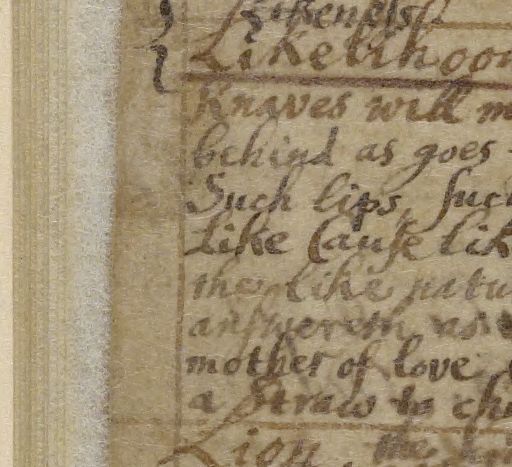 Likeness.
Likelihoo
Knaves will m
behind as goes
Such lips, such
Like Cause lik
the like natu
answereth, as
mother of love
a Straw to ch
Lion the